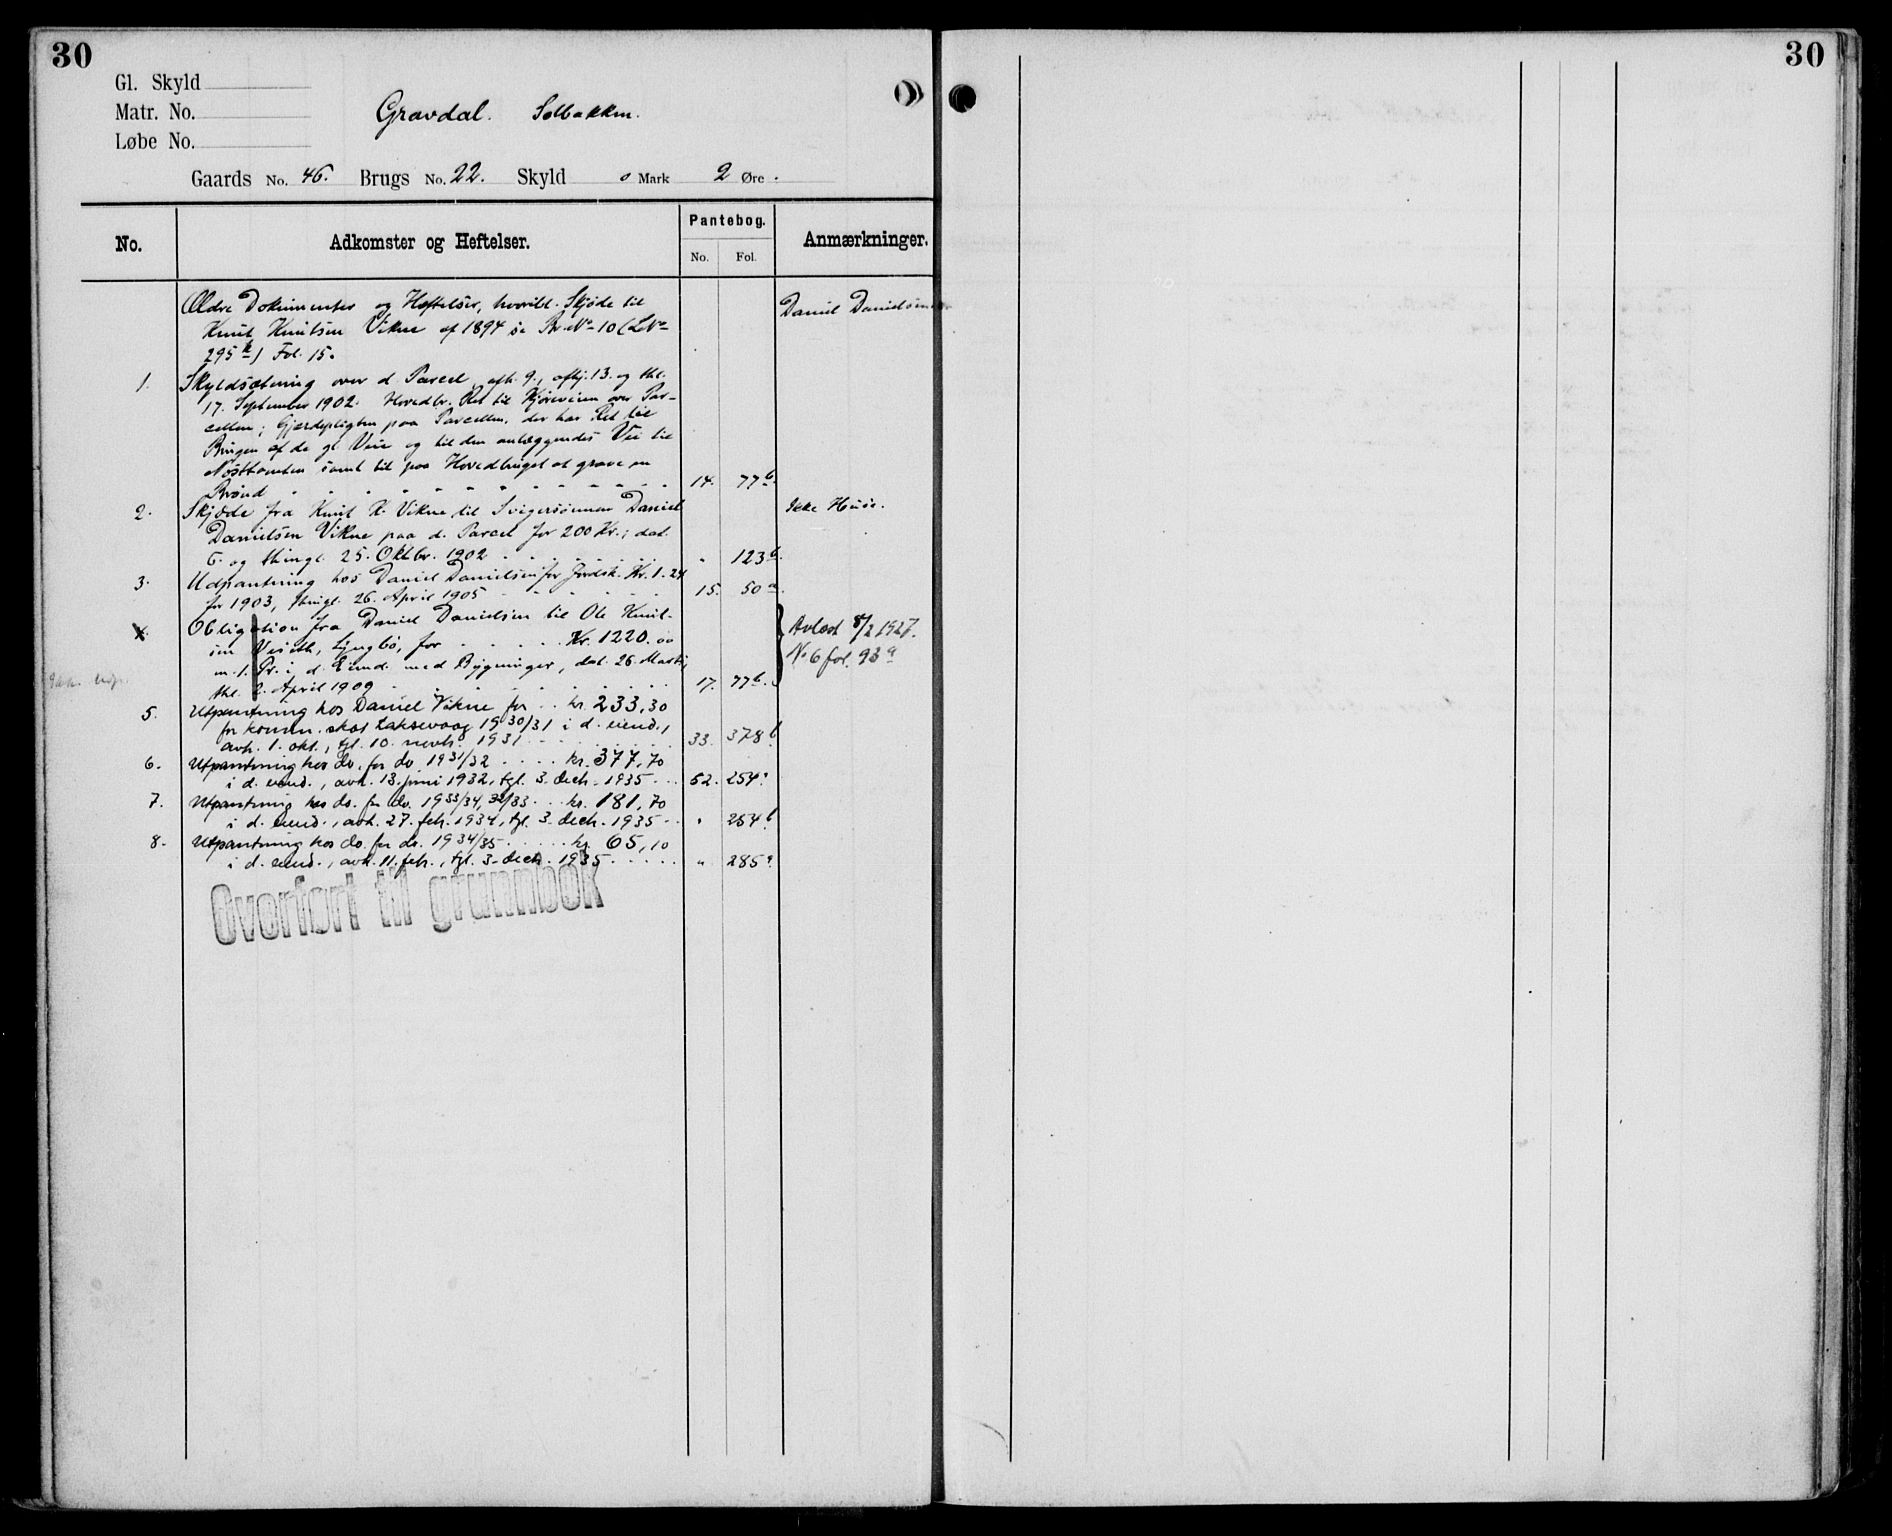 30
30
Gl. Skyld
Matr. No.
Løbe No.
Gravdal. Solbakken.
Gaards No. 46. Brugs No. 22. Skyld 0 Mark 2 Øre.
No. Adkomster og Heftelser. Pantebog. No. Fol. Anmærkninger.
Ældre Dokumenter og Heftelser, hvoribl. Skjøde til Daniel Danielsen
Knut Knutsen Vikne af 1894 se Br. No 10 (L.No
295 k) Fol. 15.
1. Skyldsætning over d. Parcel, afh. 9., afhj. 13. og thl.
17. September 1902. Hovedbr. Ret til Kjøreveien over Par-
cellen; Gjerdepligten paa Parcellen, der har Ret til
Brugen af de gl. Veie og til den anlæggendes Vei til
Nøsttomten samt til paa Hovedbruget at grave en
Brønd 14. 77 b.
2. Skjøde fra Knut K. Vikne til Svigersønnen Daniel Ikke Huse.
Danielsen Vikne paa d. Parcel for 200 Kr.; dat.
6. og thingl. 25. Oktbr. 1902 " 123 b.
3. Udpantning hos Daniel Danielsen for Jordsk. Kr. 1.24
for 1903, thingl. 26. April 1905 15. 50 a.
4. Obligation fra Daniel Danielsen til Ole Knut-
sen Vseth, Lyngbø, for Kr. 1220.00 Avlæst 8/2 1927.
m. 1. Pr. i d. Eiend. med Bygninger, dat. 26. Marts, No 6 fol. 93 a
thl. 2. April 1909 17. 77 b.
5. Utpantning hos Daniel Vikne for kr. 233,30
for komm. skat Laksevaag 1930/31 i d. eiend.,
avh. 1. okt., tgl. 10. novbr. 1931 33. 378 b
6. Utpantning hos do. for do. 1931/32 kr. 377,70
i d. eiend., avh. 13. juni 1932, tgl. 3. decb. 1935 52. 254 a
7. Utpantning hos do. for do. 1933/34, 32/33 kr. 181,70
i d. eiend., avh. 27. feb. 1934, tgl. 3. decb. 1935 " 254 b
8. Utpantning hos do. for do. 1934/35 kr. 65,10
i d. eiend., avh. 11. feb., tgl. 3. decb. 1935 " 285 a
Overført til grunnbok